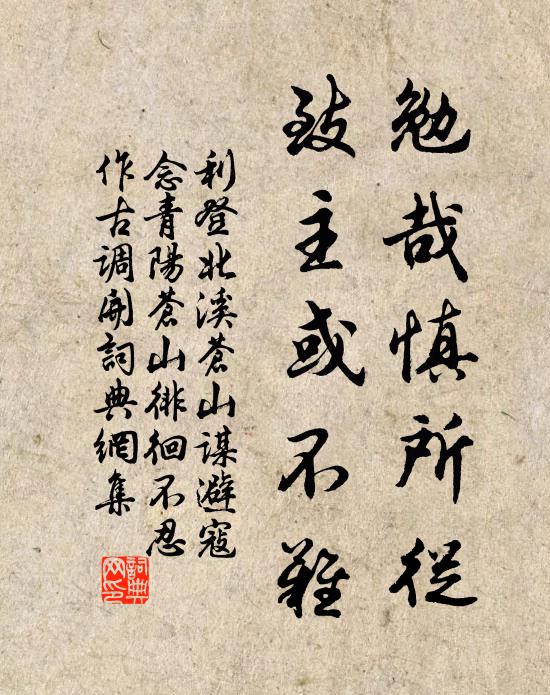 勉哉慎所從
致主或不難
利登北溪蒼山謀避寇
念青陽蒼山徘徊不忍
作古調開詞典網集
詞典
网印